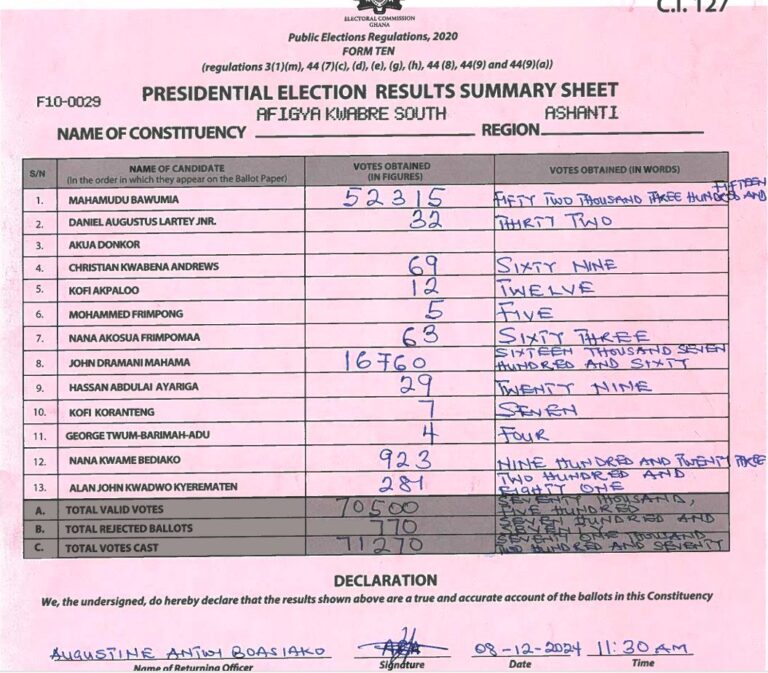 C.I. 127
ELECTORAL COMMISSION
GHANA
Public Elections Regulations, 2020
FORM TEN
(regulations 3(1)(m), 44 (7)(c), (d), (e), (g), (h), 44 (8), 44(9) and 44(9)(a))
F10-0029
PRESIDENTIAL ELECTION RESULTS SUMMARY SHEET
NAME OF CONSTITUENCY AFIGYA KWABRE SOUTH REGION ASHANTI
S/N NAME OF CANDIDATE (In the order in which they appear on the Ballot Paper) VOTES OBTAINED (IN FIGURES) VOTES OBTAINED (IN WORDS)
1. MAHAMUDU BAWUMIA 52315 FIFTY TWO THOUSAND THREE HUNDRED AND FIFTEEN
2. DANIEL AUGUSTUS LARTEY JNR. 32 THIRTY TWO
3. AKUA DONKOR
4. CHRISTIAN KWABENA ANDREWS 69 SIXTY NINE
5. KOFI AKPALOO 12 TWELVE
6. MOHAMMED FRIMPONG 5 FIVE
7. NANA AKOSUA FRIMPOMAA 63 SIXTY THREE
8. JOHN DRAMANI MAHAMA 16760 SIXTEEN THOUSAND SEVEN HUNDRED AND SIXTY
9. HASSAN ABDULAI AYARIGA 29 TWENTY NINE
10. KOFI KORANTENG 7 SEVEN
11. GEORGE TWUM-BARIMAH-ADU 4 FOUR
12. NANA KWAME BEDIAKO 923 NINE HUNDRED AND TWENTY THREE
13. ALAN JOHN KWADWO KYEREMATEN 281 TWO HUNDRED AND EIGHTY ONE
A. TOTAL VALID VOTES 70500 SEVENTY THOUSAND, FIVE HUNDRED
B. TOTAL REJECTED BALLOTS 770 SEVEN HUNDRED AND
C. TOTAL VOTES CAST 71270 SEVENTY ONE THOUSAND TWO HUNDRED AND SEVENTY
DECLARATION
We, the undersigned, do hereby declare that the results shown above are a true and accurate account of the ballots in this Constituency
AUGUSTINE ANTWI BOASIAKO 08-12-2024 11:30 AM
Name of Returning Officer Signature Date Time